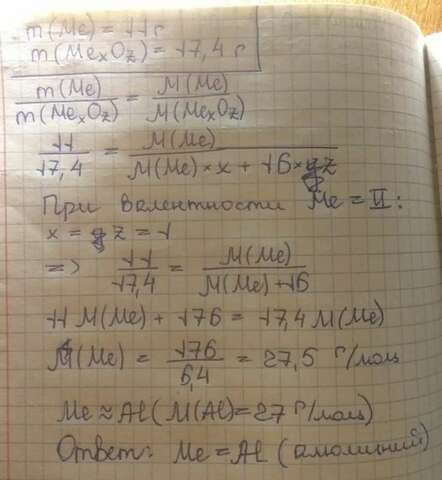 m(Me) = 11 г
m(MeₓO_z) = 17,4 г
m(Me)/m(MeₓO_z) = M(Me)/M(MeₓO_z)
11/17,4 = M(Me)/(M(Me)×x + 16×z)
При валентности Me = II:
x = z = 1
=> 11/17,4 = M(Me)/(M(Me)+16)
11 M(Me) + 176 = 17,4 M(Me)
M(Me) = 176/6,4 = 27,5 г/моль
Me ≈ Al (M(Al)=27 г/моль)
Ответ: Me = Al (алюминий)